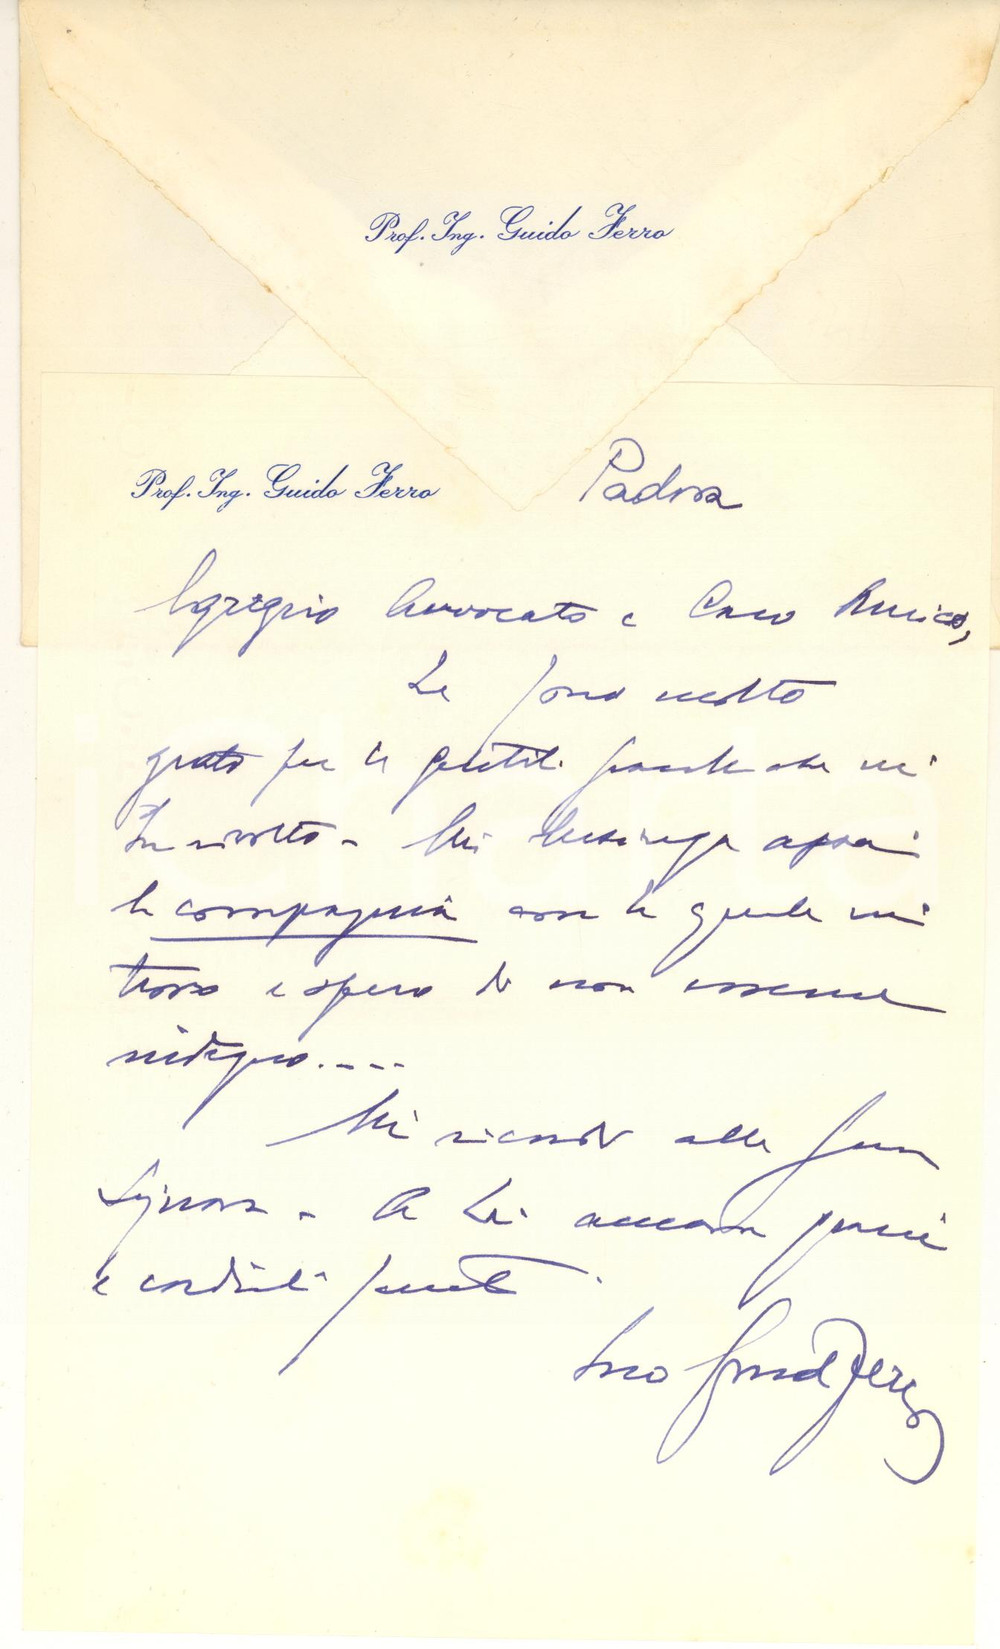 Prof. Ing. Guido Ferro
Prof. Ing. Guido Ferro
Padova
Egregio Avvocato e Caro Amico,
Le sono molto
grato per le gentili parole che mi
ha rivolto - Mi lusinga assai
la compagnia con la quale mi
trovo e spero di non esserne
indegno.....
Mi ricordi alla Sua
Signora - A Lei ancora grazie
e cordiali saluti.
Suo Guido Ferro